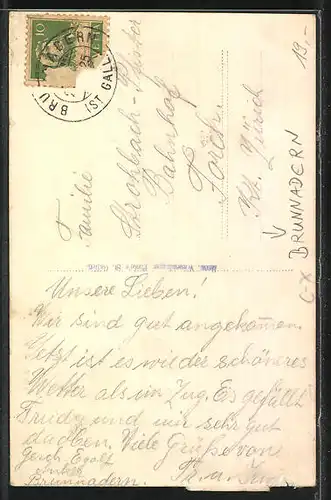 10
BRUNNADERN
(ST. GALLEN)
19.-
Familie
Strohbach-
Bahnhof
Forch.
Kt. Zürich
BRUNNADERN
Unsere Lieben!
Wir sind gut angekommen.
Jetzt ist es wieder schöneres
Wetter als im Zug. Es gefällt
Frieda und mir sehr gut
daoben. Viele Grüße von
Gesch.
Brunnadern.